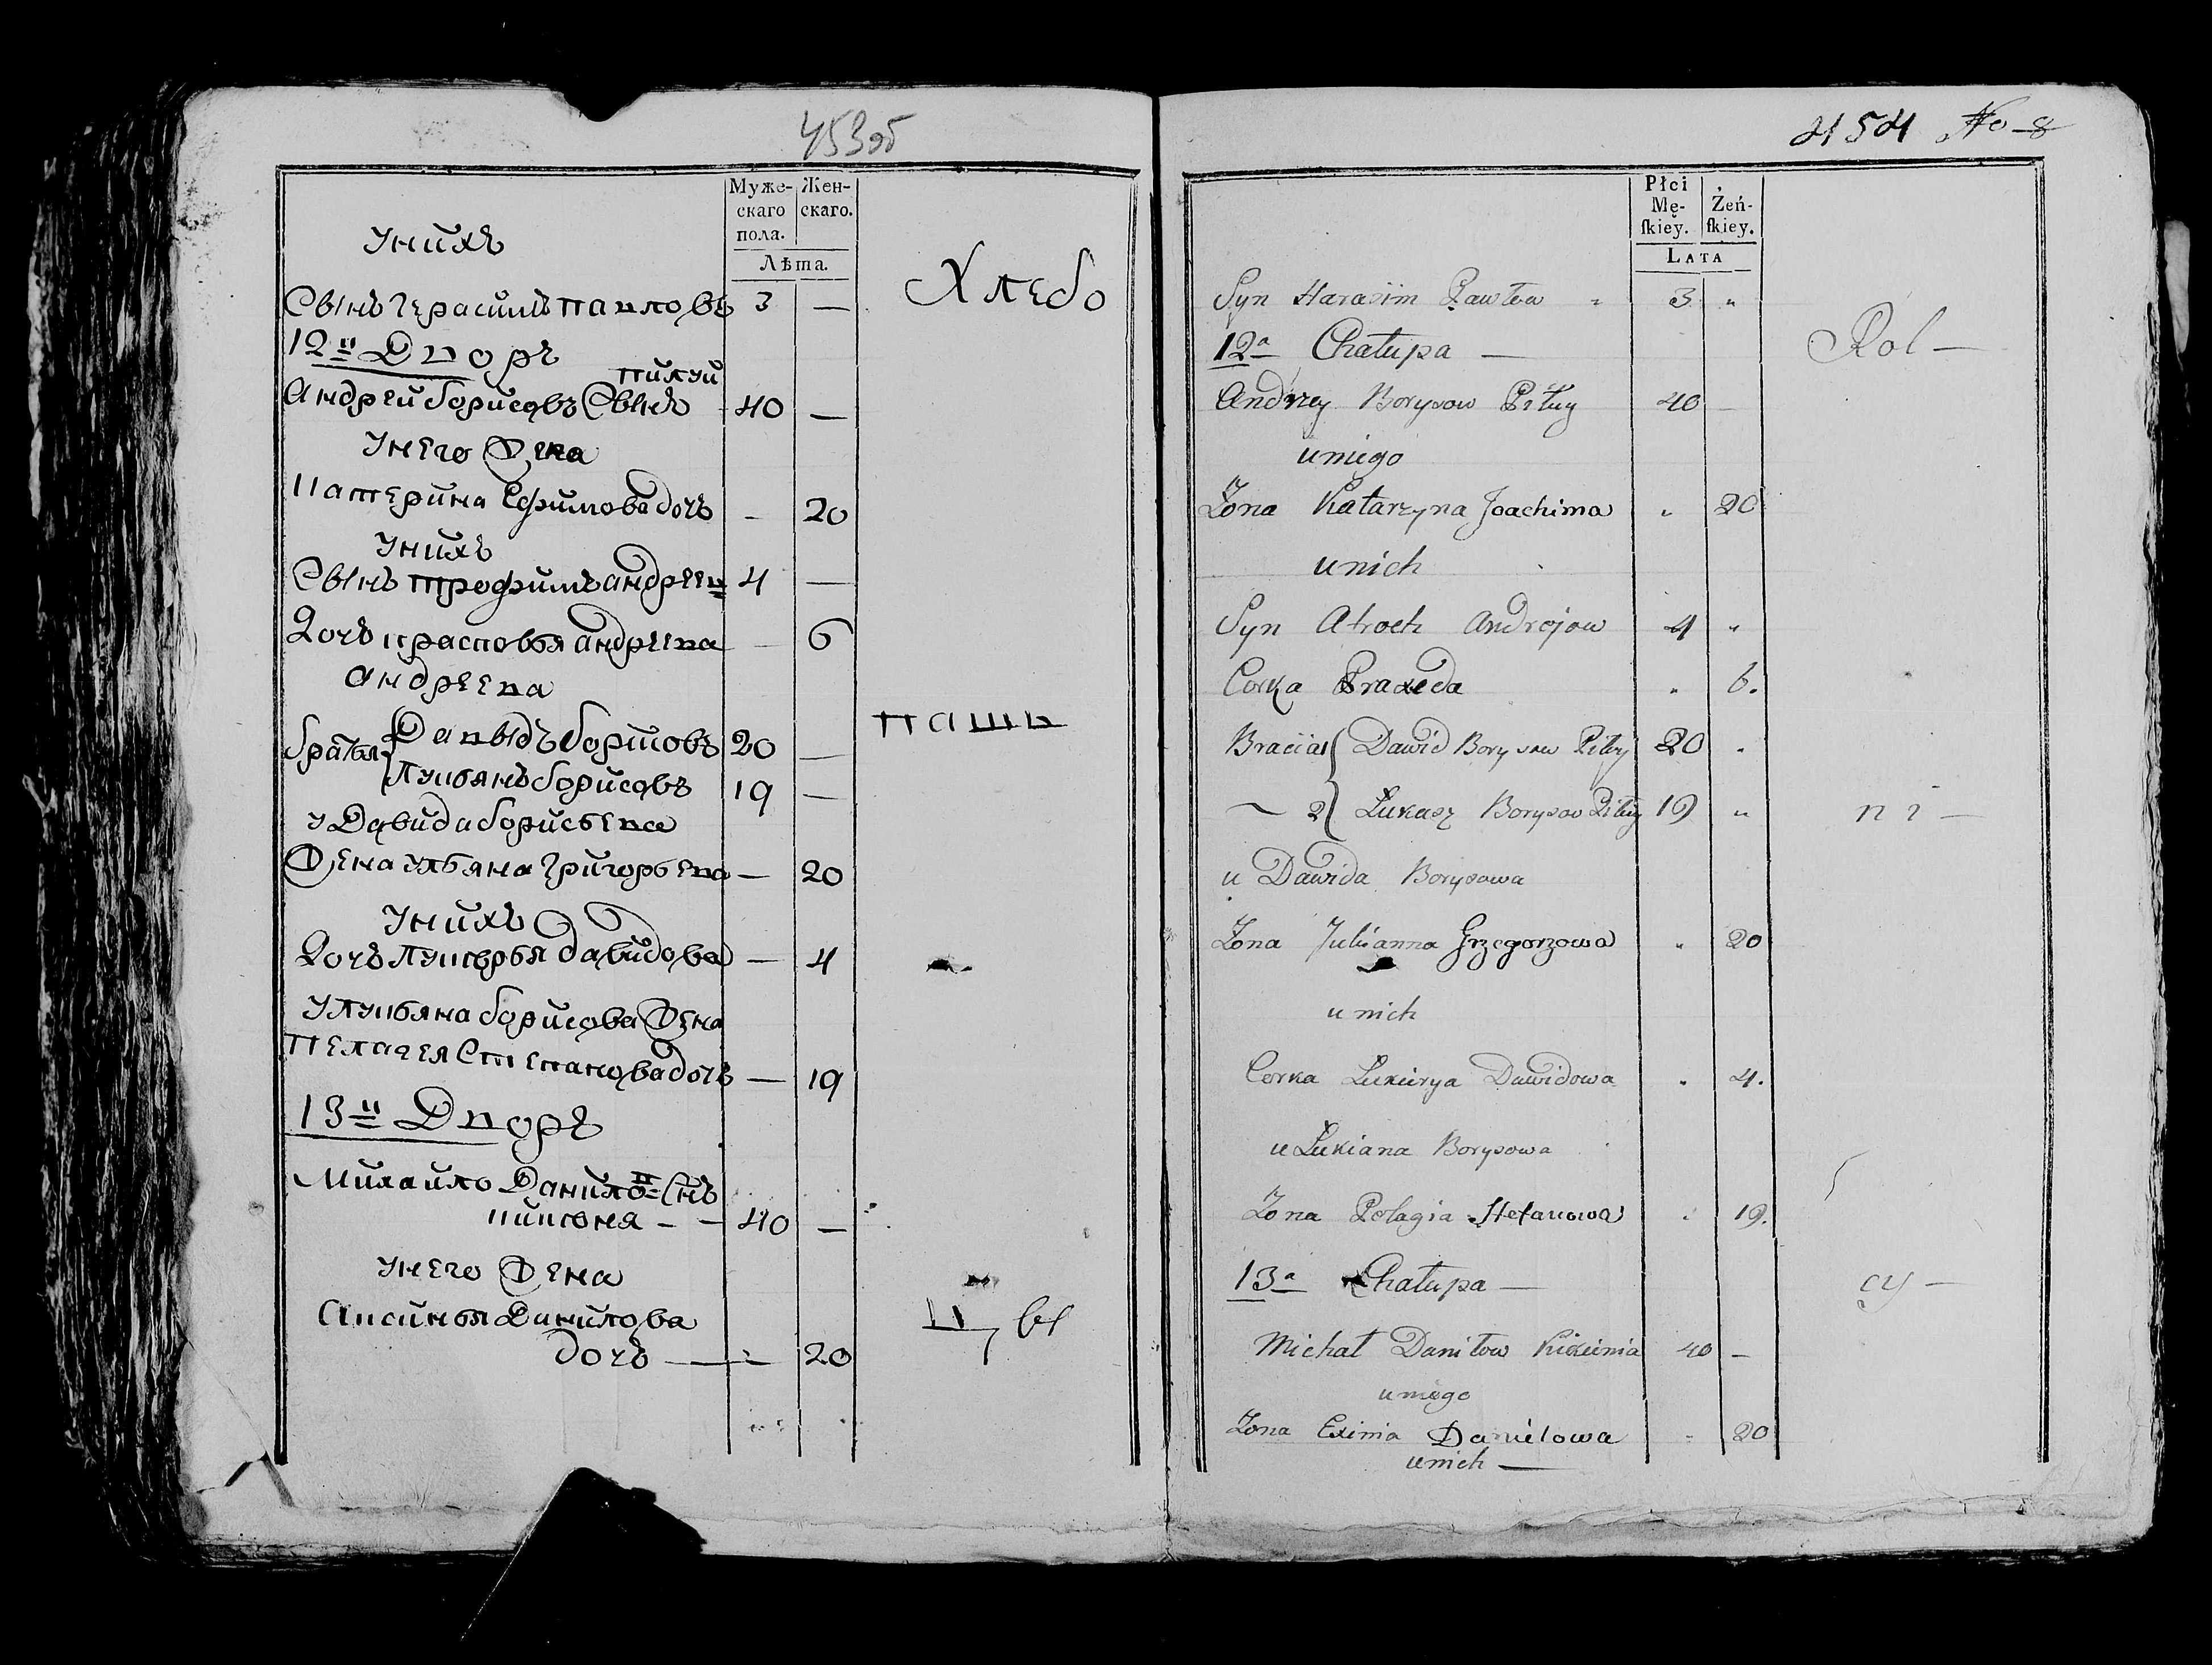 453об
Муже- Жен-
скаго скаго.
пола.
Лѣта.
Унихъ
Хлебо
Сынъ Герасимъ павловъ 3 —
12й Дворъ
пилуй
Андрей борисовъ Сынъ 40 —
Унего Жена
Катерина Ефимова дочъ - 20
Унихъ
Сынъ трофимъ андреев 4 —
Дочъ прасковья андреева — 6
андреева
пашц
братья Давыдъ борисовъ 20 —
Лукьянъ борисовъ 19 —
у Давида борисьева
Жена ульяна григорьева — 20
Унихъ
Дочъ лукерья давидова — 4
у лукьяна борисова Жена
пелагея Степанова дочъ — 19
13й Дворъ
Михайло Данилов Снъ
кикеня - - 40 —
Унего Жена
Аксинья Данилова
цы
дочъ — 20
454 No 8
Płci Żeń-
Mę- ſkiey.
ſkiey.
LATA
Syn Harasim Pawłow 3 "
12a Chałupa —
Rol —
Andrzey Borysow Piłuy 40 —
u niego
Żona Katarzyna Joachima " 20
u nich
Syn Atroch Andrejow 4 "
Corka Praxeda " 6.
Bracia 1 Dawid Borysow Piłuy 20 "
— 2 Łukasz Borysow Piłuy 19 "
ni —
u Dawida Borysowa
Żona Julianna Grzegorzowa " 20
u nich
Corka Lukierya Dawidowa " 4.
u Lukiana Borysowa
Żona Pelagia Stefanowa " 19.
13a Chałupa —
cy —
Michał Daniłow Kikinia 40 —
u niego
Żona Exinia Daniełowa " 20
u nich —